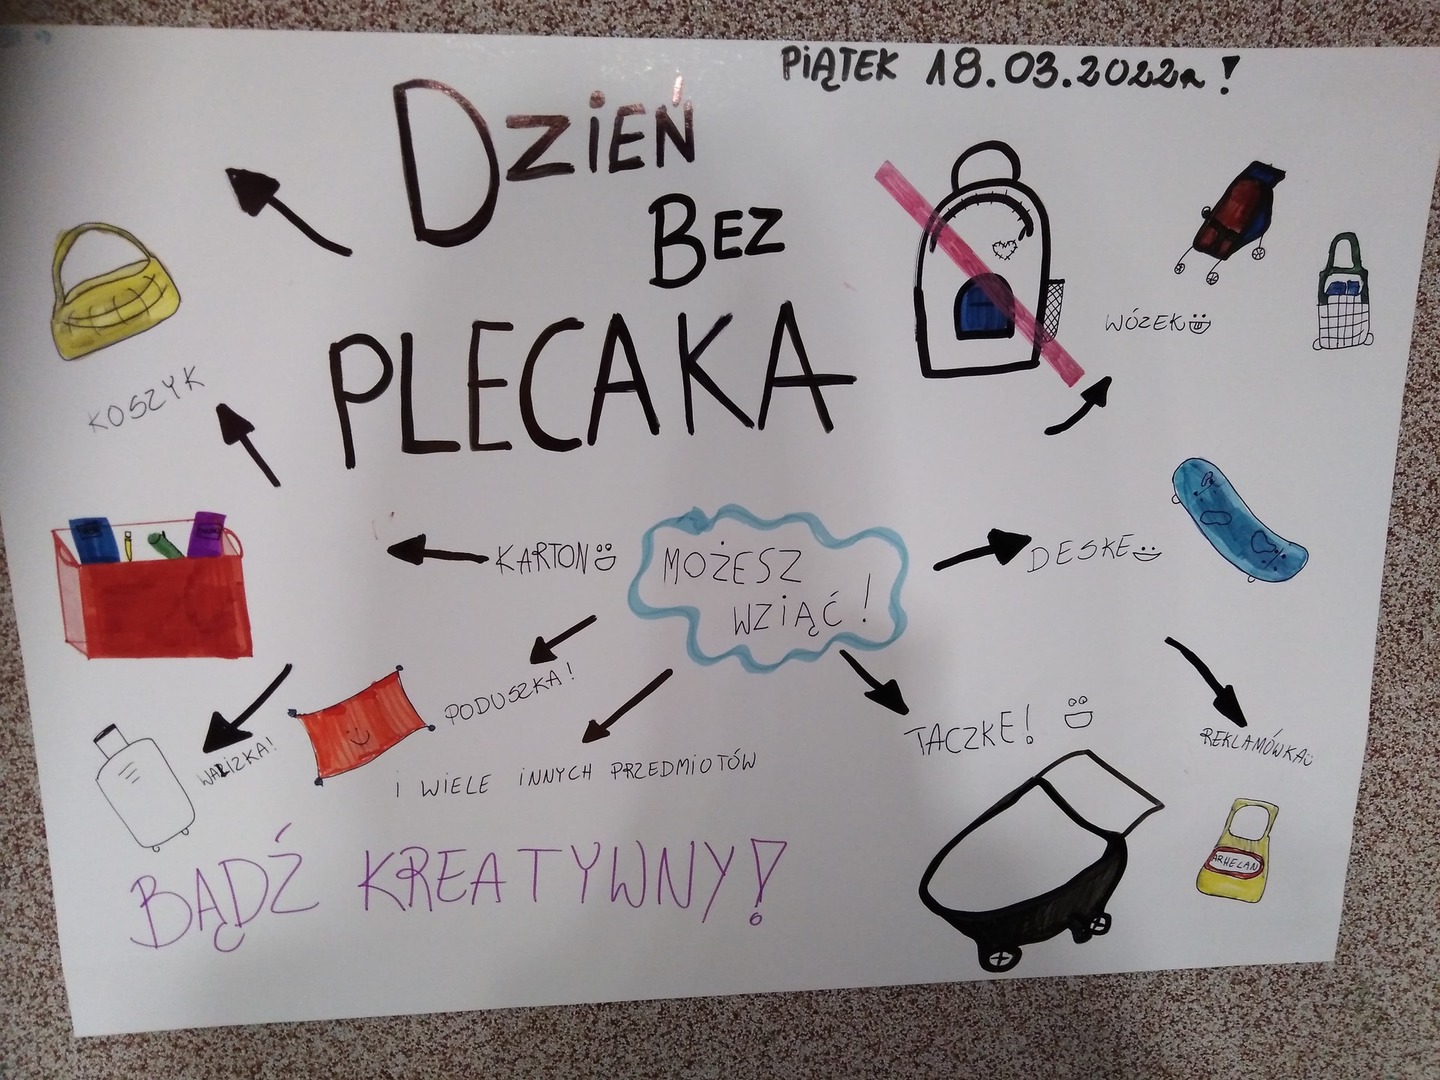 PIĄTEK 18.03.2022r!
DZIEŃ
BEZ
PLECAKA
KOSZYK
WÓZEK
KARTON
MOŻESZ
WZIĄĆ!
DESKE
PODUSZKA!
WALIZKA!
TACZKE!
REKLAMÓWKA
I WIELE INNYCH PRZEDMIOTÓW
ARHELAN
BĄDŹ KREATYWNY!